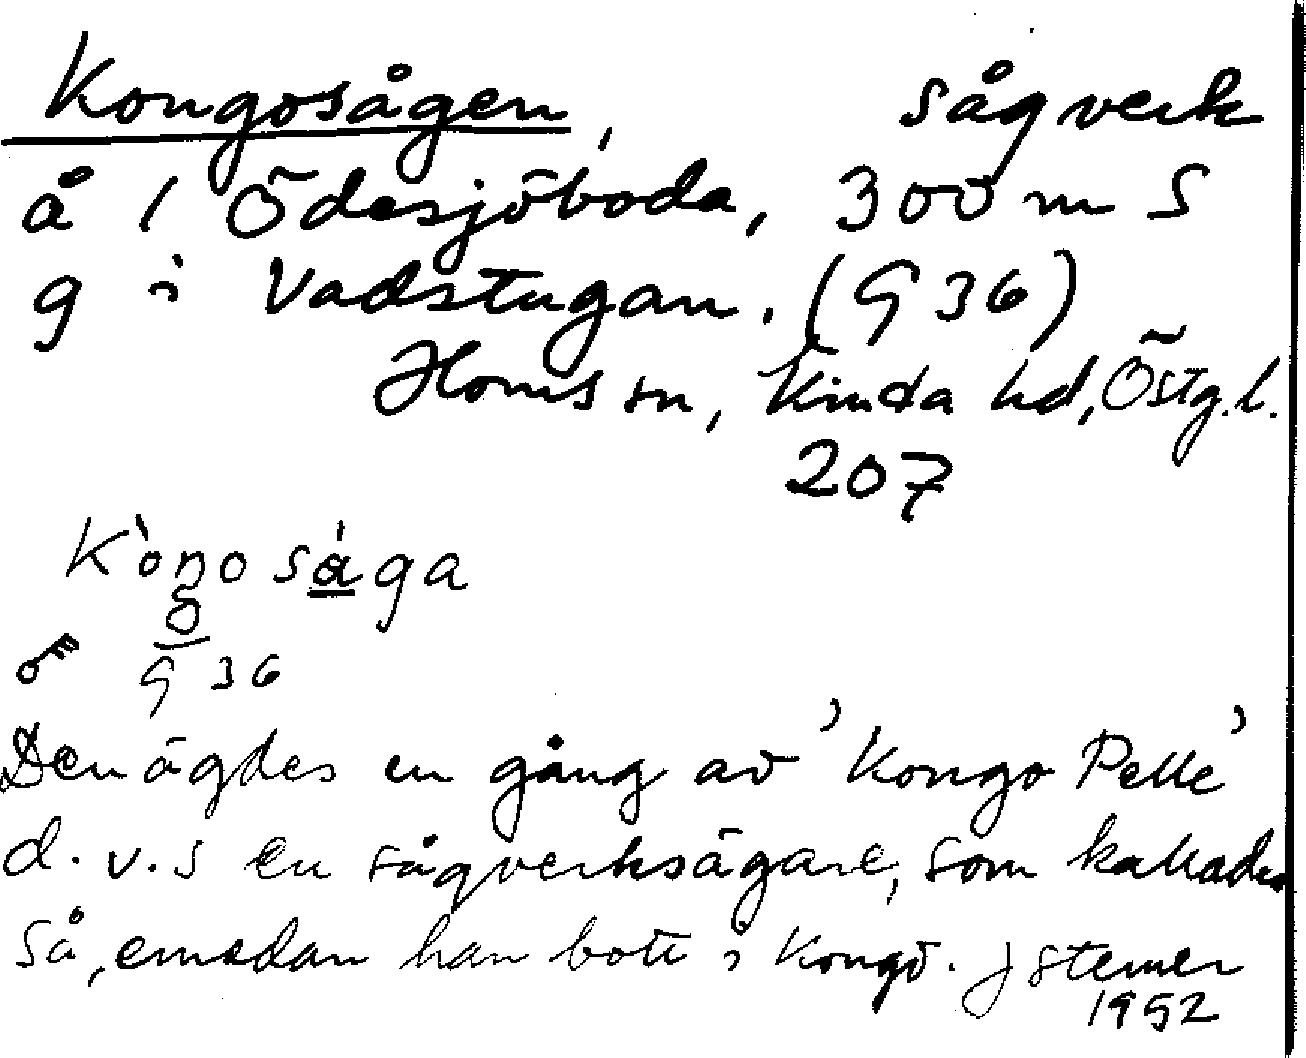 Kongosågen, sågverk
å / Ödesjöboda, 300 m S
g i Vadstugan. (G 36)
Horns sn, Kinda hd, Östg. l.
207
Kòŋosága
G 36
Den ägdes en gång av 'Kongo Pelle'
d. v. s en sågverksägare, som kallades
så, emedan han bott i Kongo.
1952